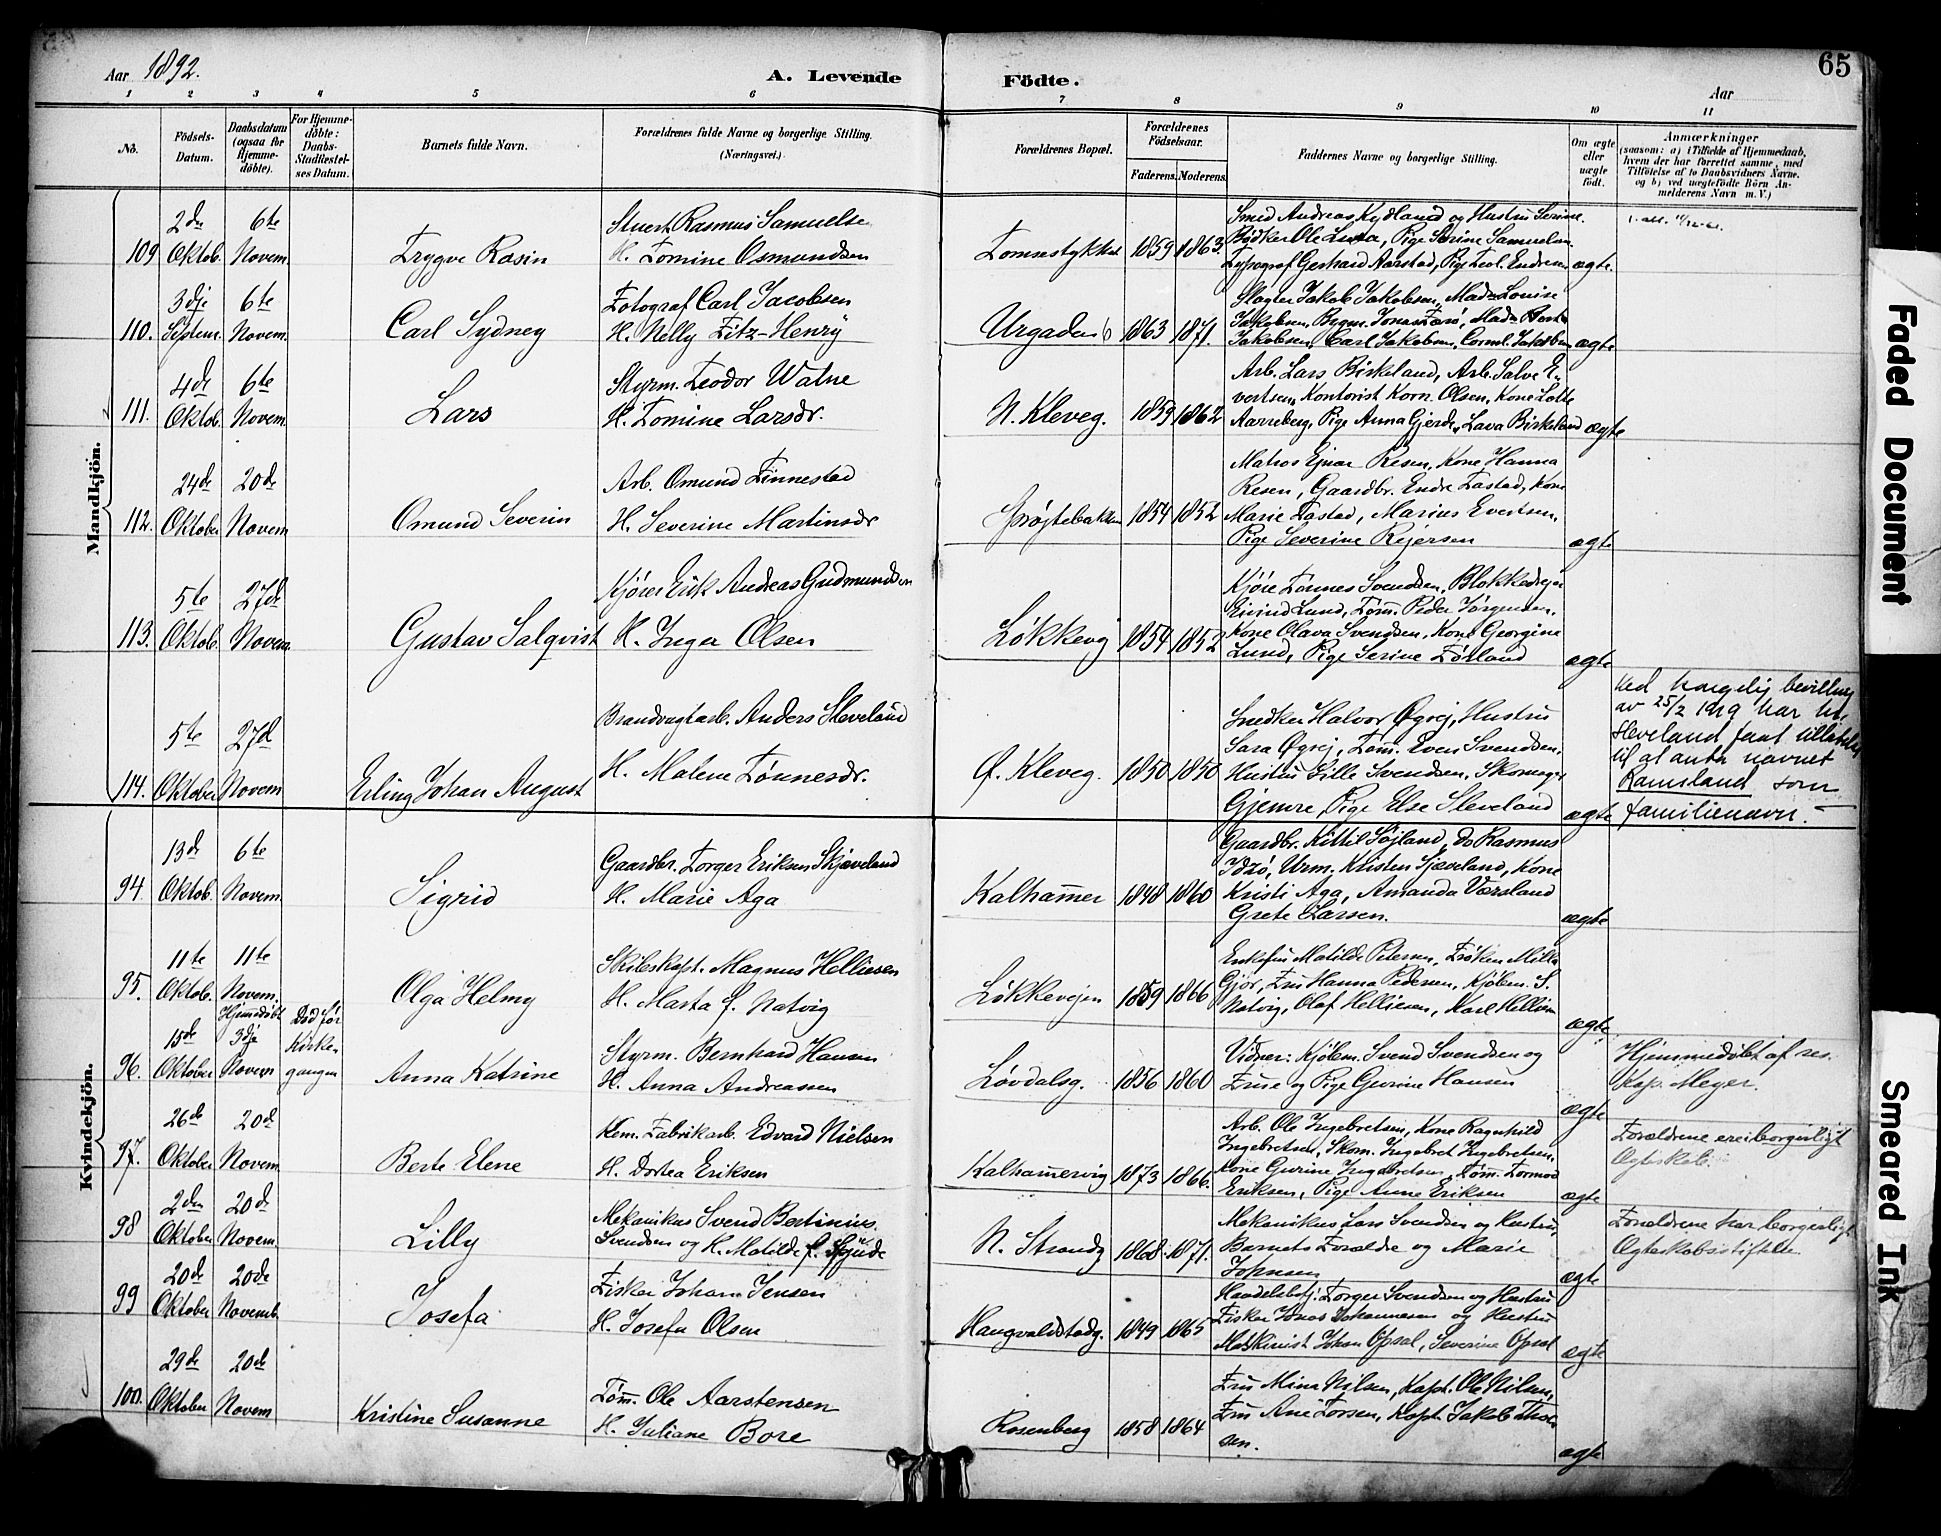 Aar 1892.
A. Levende
Födte.
Aar
65
1 2 3 4 5 6 7 8 9 10 11
No.
Födsels-
Datum.
Daabsdatum
(ogsaa for
Hjemme-
döbte).
For Hjemme-
döbte:
Daabs-
Stadfæstel-
ses Datum.
Barnets fulde Navn.
Forældrenes fulde Navne og borgerlige Stilling.
(Næringsvei.)
Forældrenes Bopæl.
Forældrenes
Födselsaar.
Faderens. Moderens.
Faddernes Navne og borgerlige Stilling.
Om ægte
eller
uægte
født.
Anmærkninger
(saasom: a) i Tilfælde af Hjemmedaab,
hvem der har forrettet samme, med
Tilföielse af to Daabsvidners Navne.
og b) ved uægtefödte Börn An-
melderens Navn m. V.)
Mandkjön.
109
2den
Oktob.
6te
Novem.
Trygve Rosin
Stuert Rasmus Samuelse
H. Tomine Osmundsen
1859 1863
Smed Andreas Kydland og Hustru Serine.
Bødker Ole Lura, Pige Serine Samuelsen
Typograf Gerhard Aarstad, Pige Terl. Endresen
ægte.
110.
3dje
Septem.
6te
Novem.
Carl Sydney
Fotograf Carl Jacobsen
H. Nelly Fitz-Henry
Urgaden 6
1863 1871.
Slagter Jakob Jakobsen, Mad. Louise
Jakobsen, Carl Jakobsen, Cornl. Jakobsen
ægte
111.
4de
Oktob.
6te
Novem.
Lars
Styrm. Teodor Watne
H. Tomine Larsdr.
N. Kleveg.
1859 1862
Arb. Lars Birkeland, Arb. Salve E-
vertsen, Kontorist Korn. Olsen, Kone Lotte
Aarreberg, Pige Anna Gjerde, Lava Birkeland
ægte
112.
24de
Oktober
20de
Novem
Omund Severin
Arb. Omund Finnestad
H. Severine Martinsdr
Grøftebakken
1854 1852
Matros Ejnar Resen, Kone Hanna
Resen, Gaardbr. Endre Tastad, Kone
Marie Tastad, Marius Evertsen,
Pige Severine Rejersen
ægte
113.
5te
Oktob.
27de
Novem.
Gustav Salqvist
Kjører Erik Andreas Gudmundsen
H. Inger Olsen
Løkkevg
1854 1852
Kjøre Tønnes Svendsen, Blokkedrejer
Eivind Lund, Tøm. Peder Jørgensen,
Kone Olava Svendsen, Kone Georgine
Lund, Pige Serine Tørland
ægte
114.
5te
Oktober
27de
Novem
Erling Johan August
Brandvagtarb. Anders Sleveland
H. Malene Tønnesdr.
Ø. Kleveg.
1850 1850
Snedker Halvor Øgrej, Hustru
Sara Øgrej, Tøm. Even Svendsen,
Hustru Lille Svendsen, Skomager
Gjemre, Pige Else Sleveland
ægte
Ved kongelig bevilling
av 25/2 1919 har
Sleveland faat tillatelse
til at anta navnet
Ramsland som
familienavn.
Kvindekjön.
94.
13de
Oktob.
6te
Novem.
Sigrid
Gaardbr. Torger Eriksen Skjæveland
H. Marie Aga
Kalhammer
1848 1860
Gaardbr. Kittil Søjland, Do Rasmus
Idsø, Urm. Kristen Sjæveland, Kone
Kristi Aga, Amanda Værsland
Grete Larsen.
ægte
95.
11te
Oktob.
11te
Novem.
Olga Helmy
Skibskapt. Magnus Helliesen
H. Marta f. Natvig
Løkkevejen
1859 1866
Enkefru Matilde Petersen, Frøken Milla
Gjør, Fru Hanna Pedersen, Kjøbm. S.
Natvig, Olaf Helliesen, Karl Helliesen
ægte
96.
15de
Oktober
Hjemmedøbt
3dje
Novem
Død før
Kirken
gangen
Anna Katrine
Styrm. Bernhard Hansen
H. Anna Andreassen
Løvdalsg.
1856 1860
Vidner: Kjøbm. Svend Svendsen og
Frue og Pige Gurine Hansen
ægte
Hjemmedøbt af res.
Kap. Meyer.
97.
26de
Oktober
20de
Novem.
Berte Elene
Kem. Fabrikarb. Edvard Nielsen
H. Dortea Eriksen
Kalhammervig
1873 1866.
Arb. Ole Ingebretsen, Kone Ragnhild
Ingebretsen, Skom. Ingebret Ingebretsen,
Kone Gurine Ingebretsen, Tøm. Tormod
Eriksen, Pige Anne Eriksen
ægte
Forældrene ere i borgerligt
Ægteskab.
98
2den
Oktober
20de
Novem.
Lilly
Mekanikus Svend Bertinius
Svendsen og H. Matilde f.
N. Strandg
1868. 1871.
Mekanikus Lars Svendsen og Hustru,
Barnets Forældre og Marie
Johnsen
ægte
Forældrene har borgerligt
Ægteskabsstiftelse
99
20de
Oktober
20de
Novemb.
Josefa
Fisker Johan Jensen
H. Josefa Olsen
Haugvaldstadg.
1849 1865
Handelsbtj. Torger Svendsen og Hustru
Fisker Jonas Johannesen og Hustru
Maskinist Johan Opsal, Severine Opsal
ægte
100.
29de
Oktober
20de
Novem
Kristine Susanne
Tøm. Ole Aarstensen
H. Juliane Bore
Rosenberg
1858 1864
Fru Mina Nilsen, Kapt. Ole Nilsen,
Fru Ane Torsen, Kapt. Jakob Thor-
sen.
ægte
Faded Document
Smeared Ink